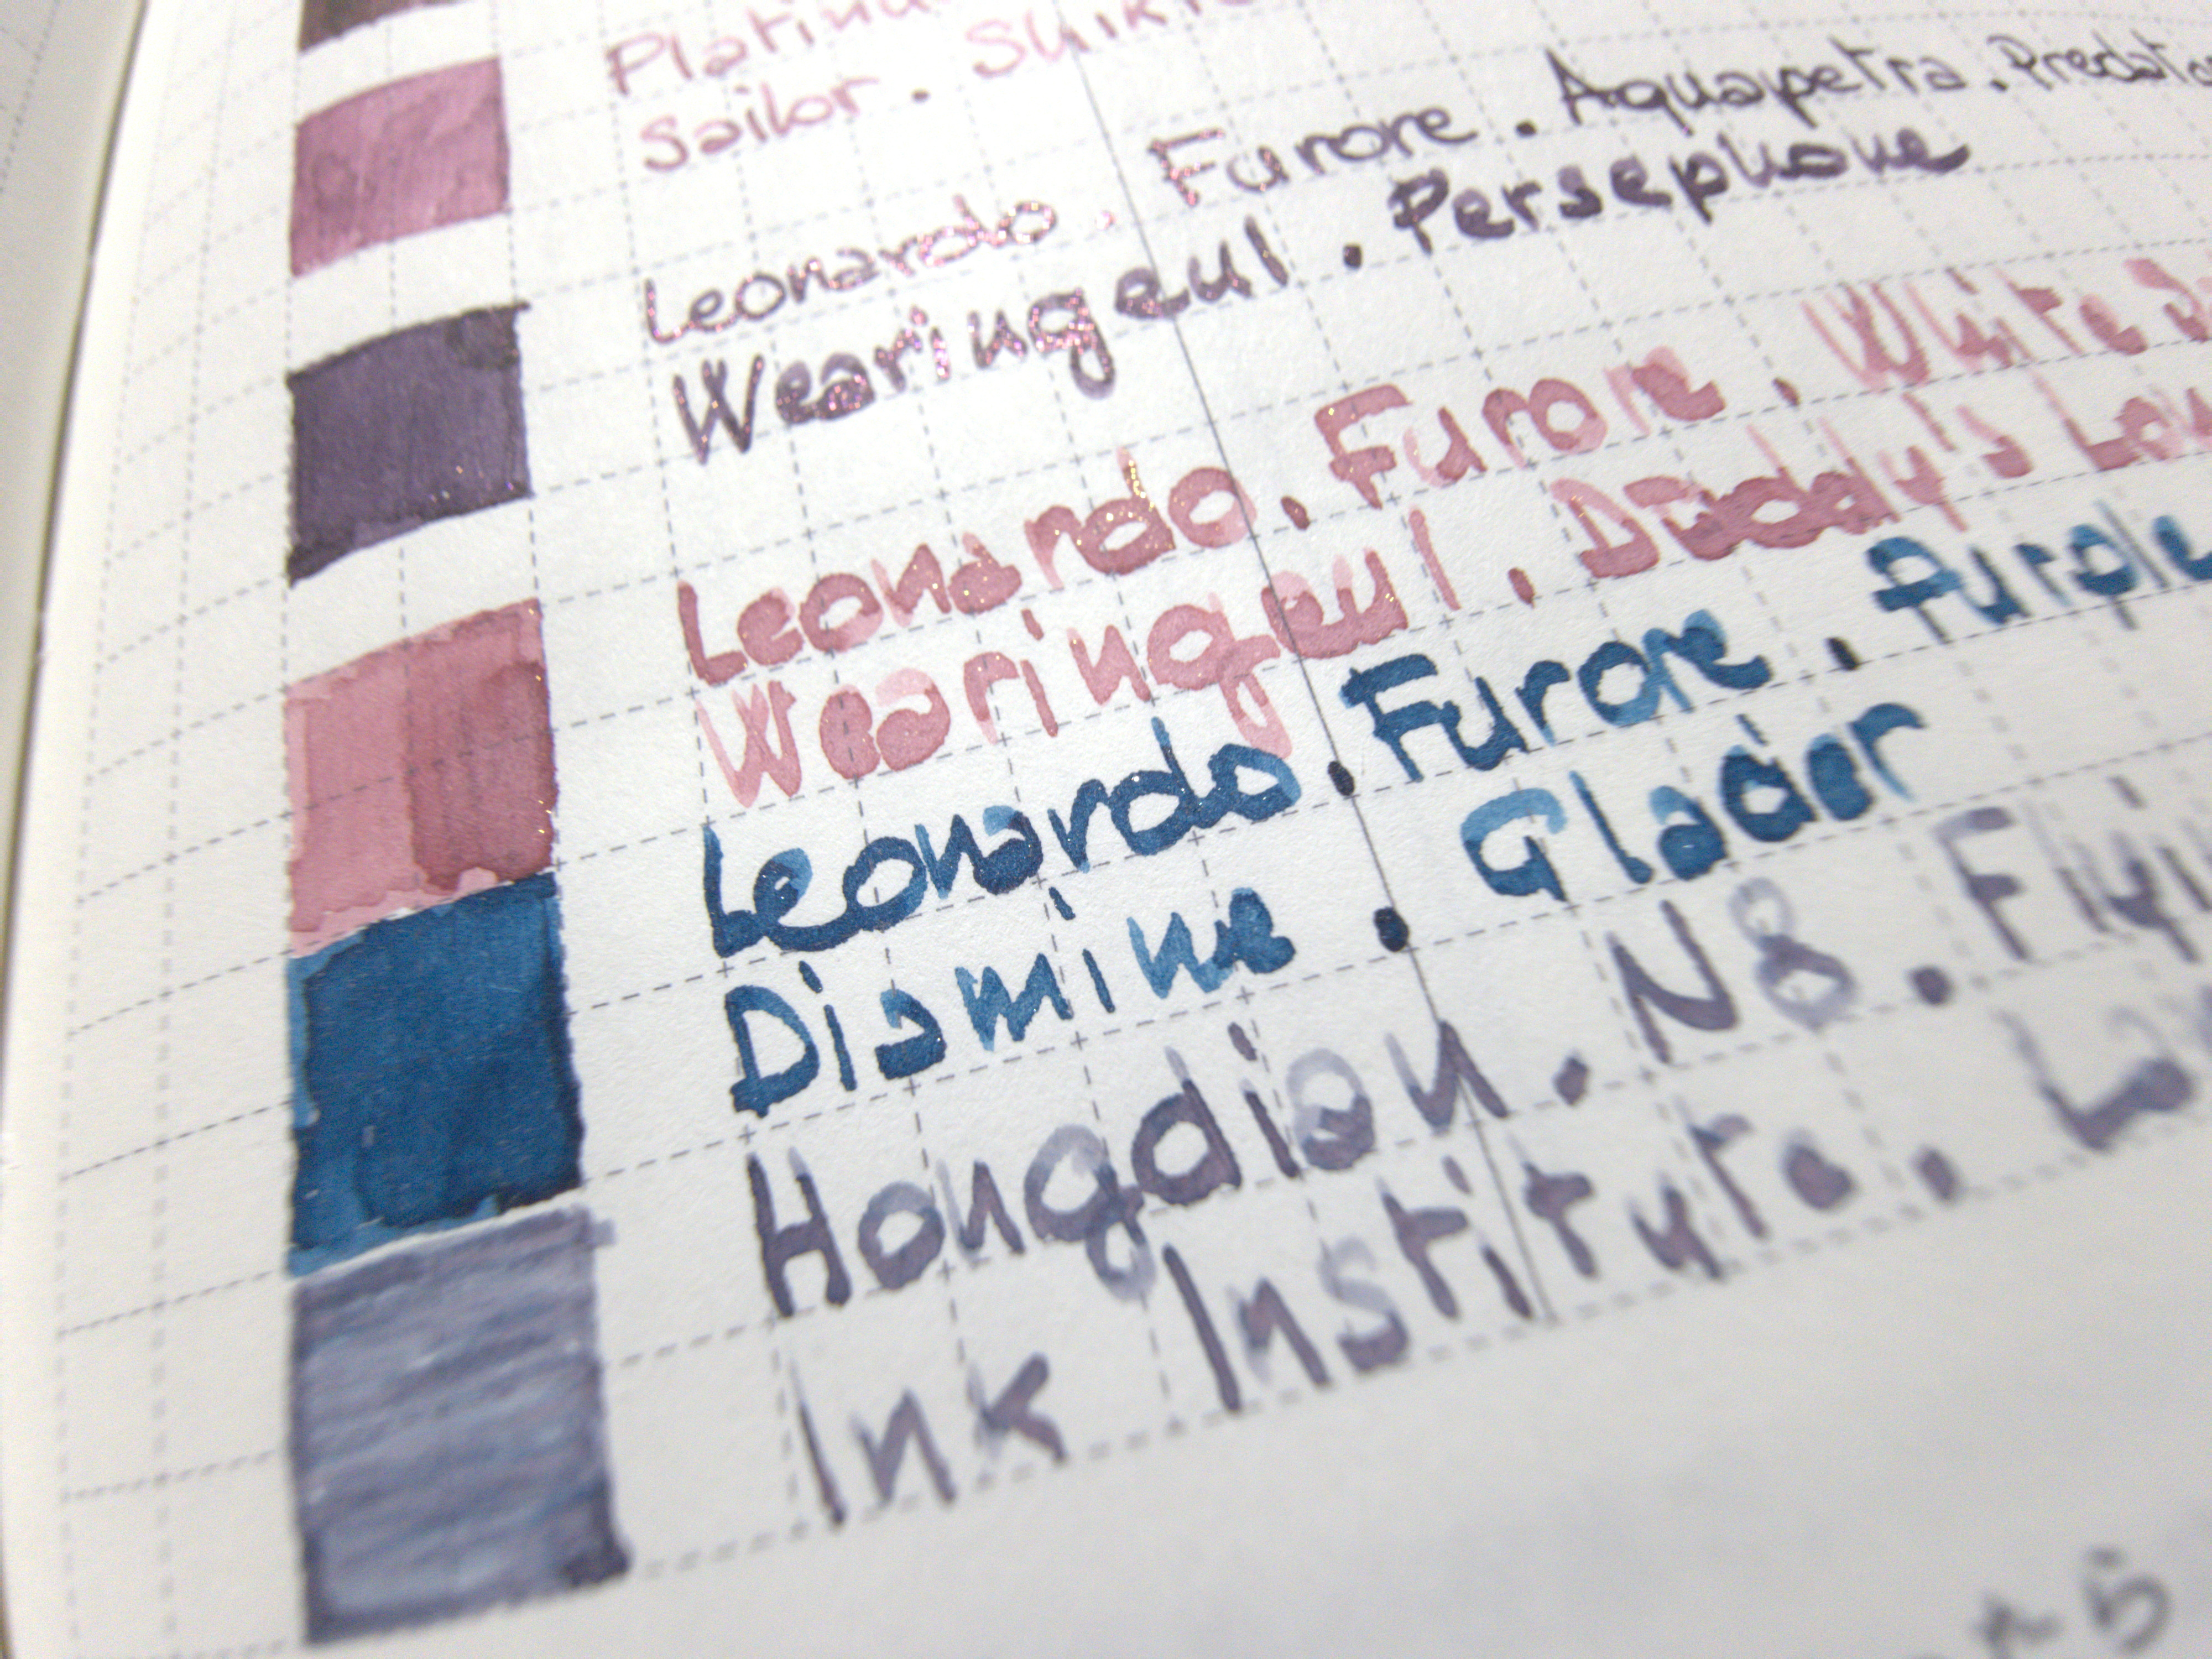 Sailor.
Leonardo. Furore. Aquapetra.
Wearingeul. Persephone
Leonardo. Furore. White
Wearingeul. Daddy's
Leonardo. Furore. Purple
Diamine. Glacier
Hongdian. N8.
Ink Institute.